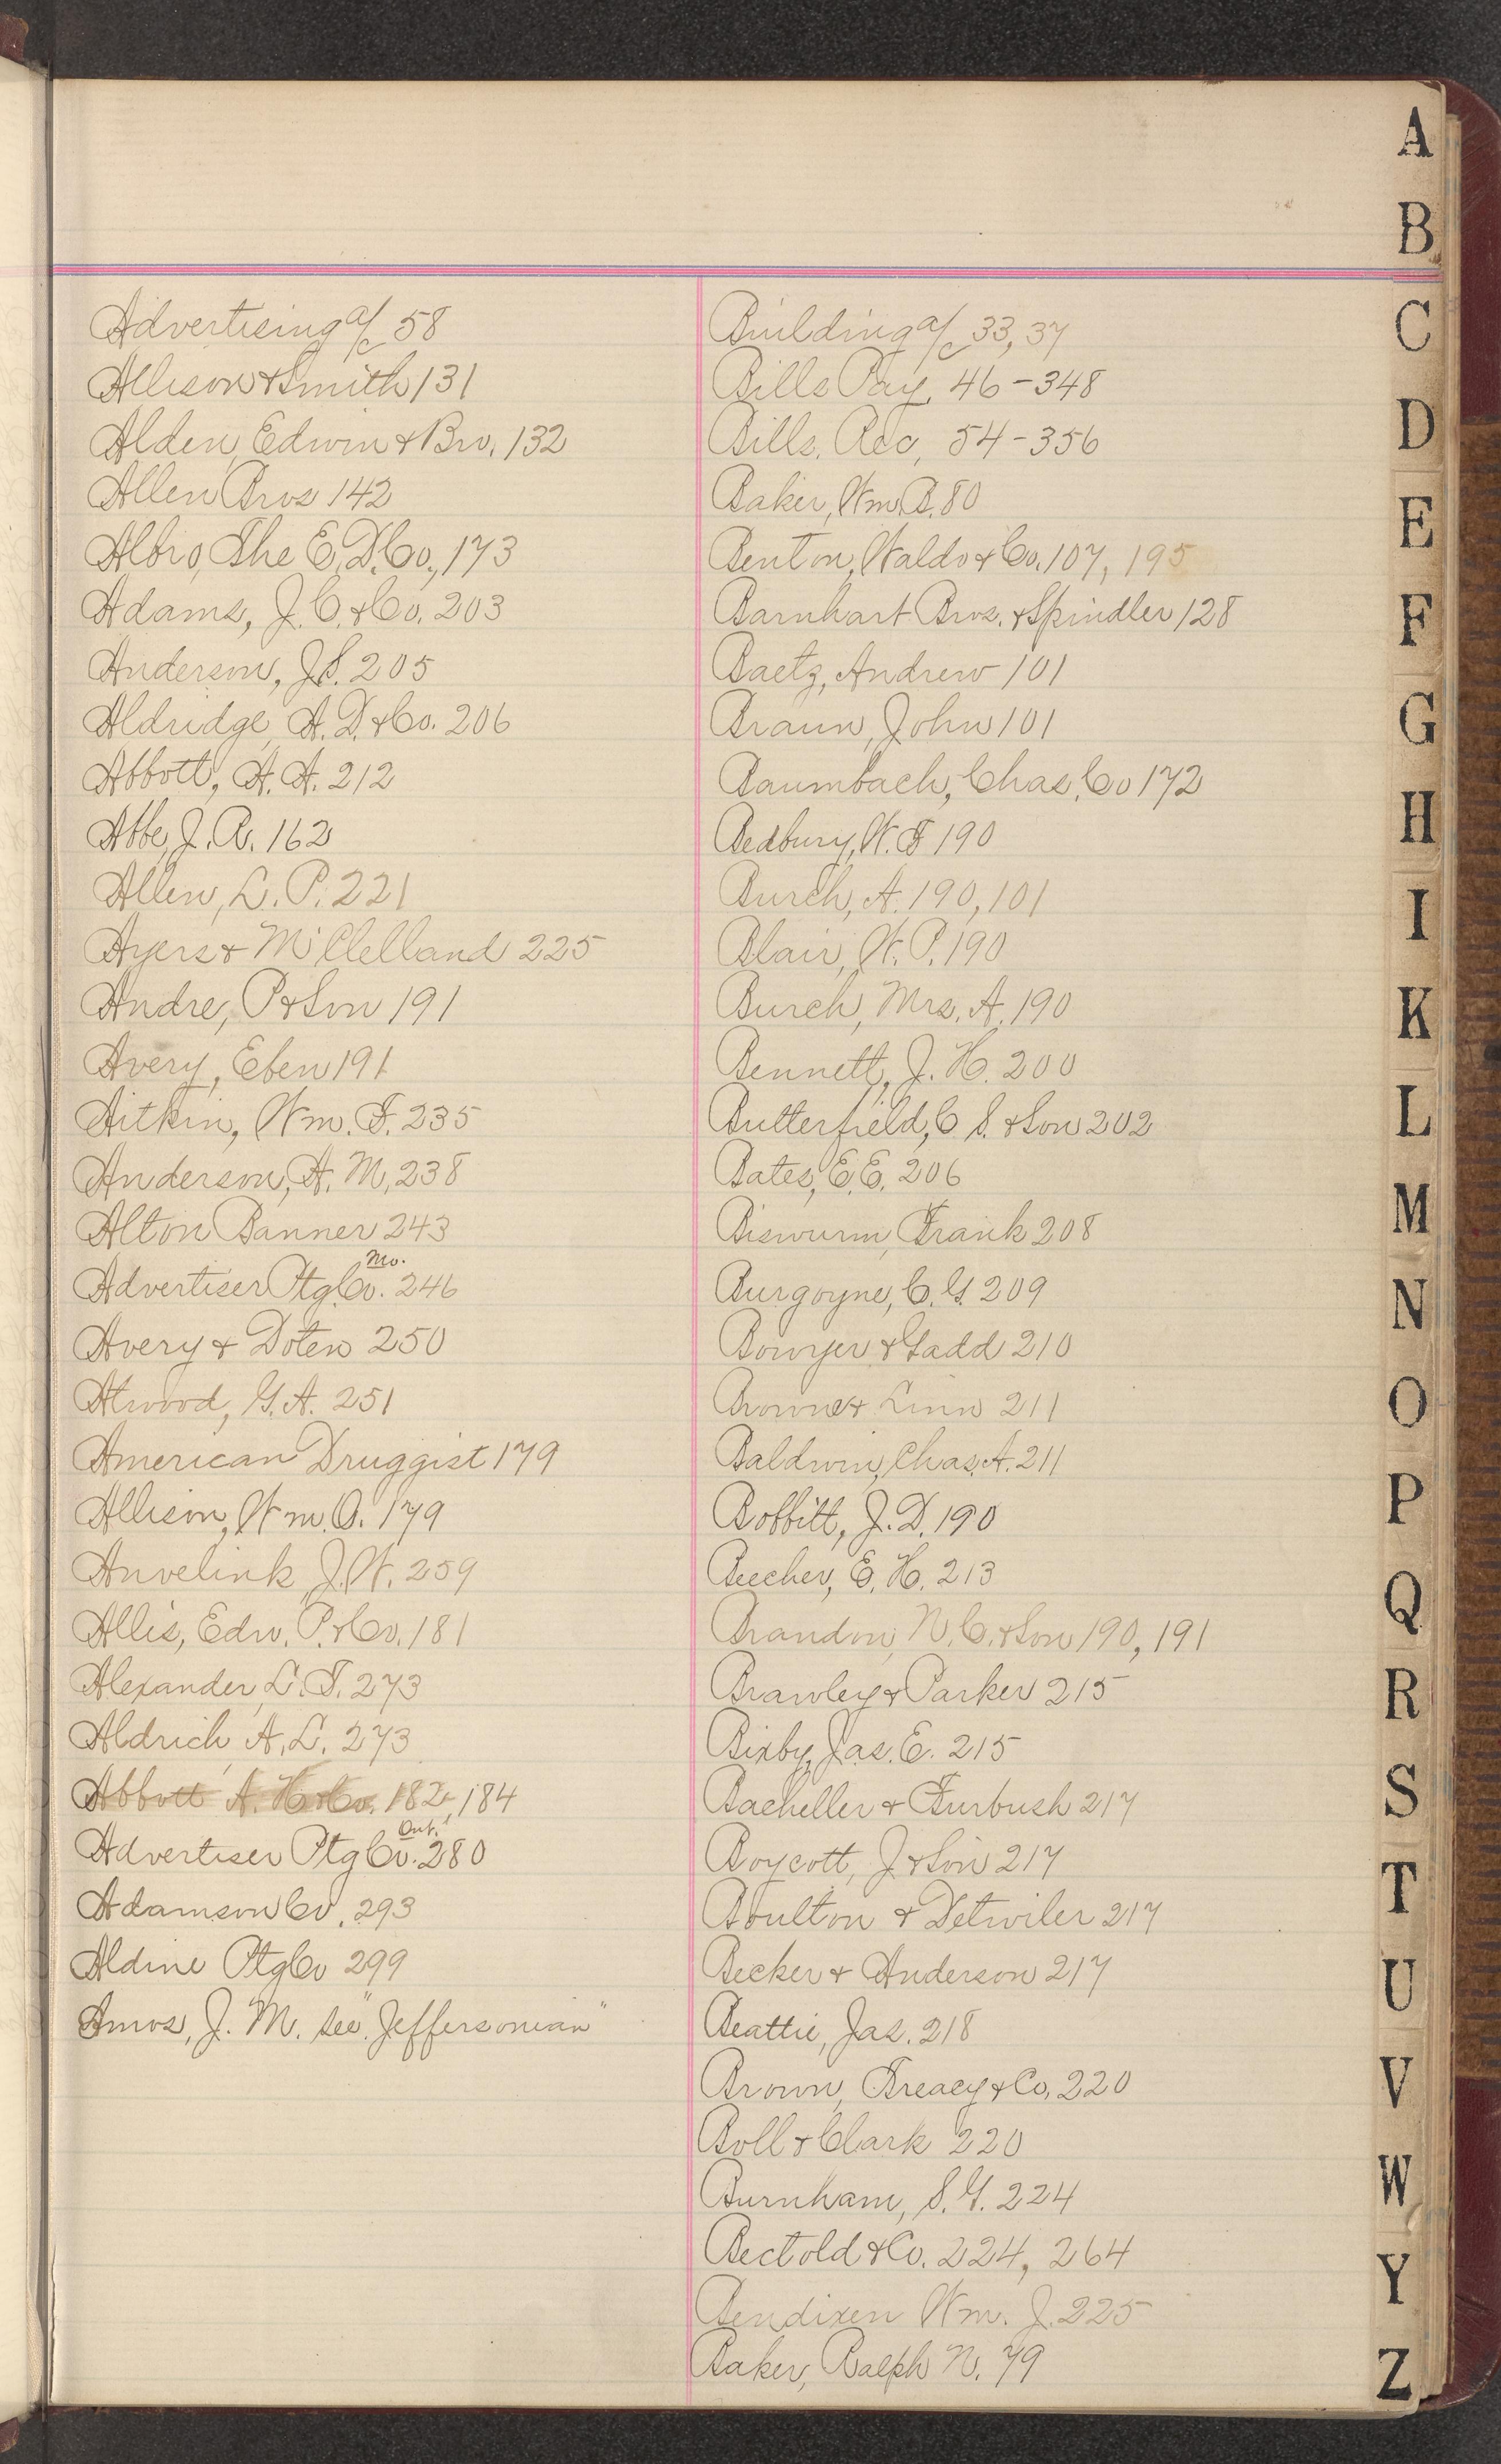 Advertising a/c 58
Allison & Smith 131
Alden, Edwin & Bro. 132
Allen Bros 142
Albro, The E. D. Co., 173
Adams, J. C. & Co. 203
Anderson, J. S. 205
Aldridge, A. D. & Co. 206
Abbott, A. A. 212
Abbe, J. R. 162
Allen, L. P. 221
Ayers & McClelland 225
Andre, P & Son 191
Avery, Eben 191
Aitkin, Wm. F. 235
Anderson, A. M, 238
Alton Banner 243
Mo.
Advertiser Ptg. Co. 246
Avery & Doten 250
Atwood, G. A. 251
American Druggist 179
Allison, Wm. O. 179
Anvelink J. W. 259
Allis, Edw. P. & Co. 181
Alexander, L. F. 273
Aldrich, A. L. 273
Abbott A. H. & Co. 182, 184
Ont.
Advertiser Ptg Co. 280
Adamson Co. 293
Aldine Ptg Co 299
Amos, J. M. see "Jeffersonian"
Building a/c 33, 37
Bills Pay, 46-348
Bills, Rec, 54-356
Baker, Wm. B. 80
Benton, Waldo & Co. 107, 195
Barnhart Bros. & Spindler 128
Baetz, Andrew 101
Braun, John 101
Baumbach, Chas, Co 172
Bedbury, W. F 190
Burch, A. 190, 101
Blair, W. P. 190
Burch, Mrs. A. 190
Bennett, J. H. 200
Butterfield, C. S. & Son 202
Bates, E. E. 206
Biswurm, Frank 208
Burgoyne, C. G. 209
Bowyer & Gadd 210
Browne & Linn 211
Baldwin, Chas. A. 211
Bobbitt, J. D. 190
Beecher, E. H. 213
Brandon, N. C. & Son 190, 191
Brawley & Parker 215
Bixby, Jas. E. 215
Bacheller & Furbush 217
Boycott, J & Son 217
Boulton & Detwiler 217
Becker & Anderson 217
Beattie, Jas. 218
Brown, Treacy & Co, 220
Boll & Clark 220
Burnham, S. G. 224
Bectold & Co. 224, 264
Bendixen Wm. J. 225
Baker, Ralph N. 79
A
B
C
D
E
F
G
H
I
K
L
M
N
O
P
Q
R
S
T
U
V
W
Y
Z